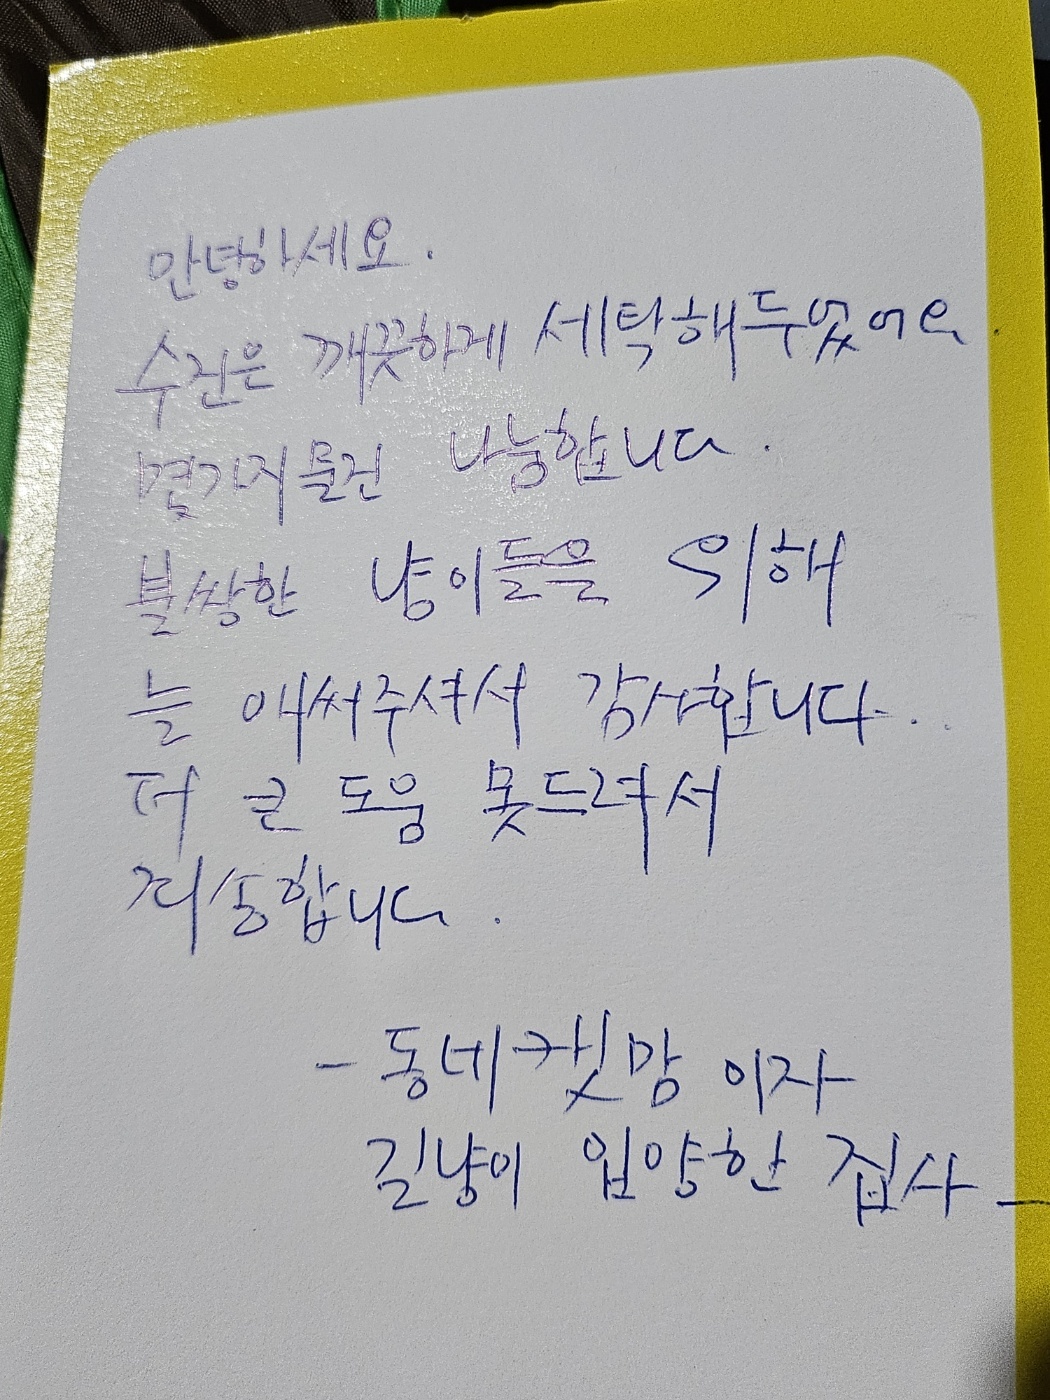 안녕하세요.
수건은 깨끗하게 세탁해두었어요
몇가지물건 나눔합니다.
불쌍한 냥이들을 위해
늘 애써주셔서 감사합니다..
더 큰 도움 못드려서
죄송합니다.
- 동네캣맘 이자
길냥이 입양한 집사 -